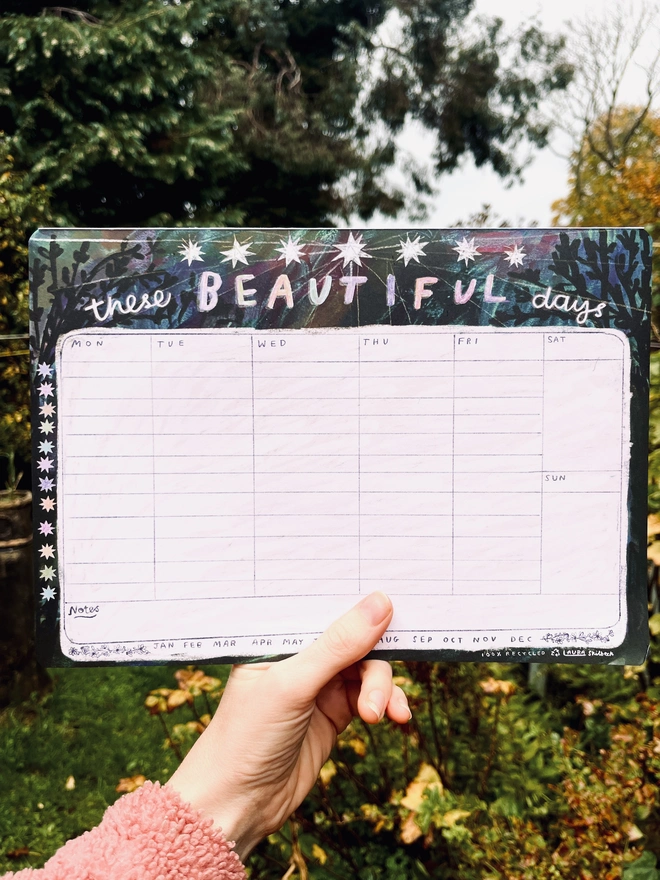 these BEAUTIFUL days
MON TUE WED THU FRI SAT
SUN
Notes
JAN FEB MAR APR MAY AUG SEP OCT NOV DEC
100% RECYCLED LAURA Skilbeck